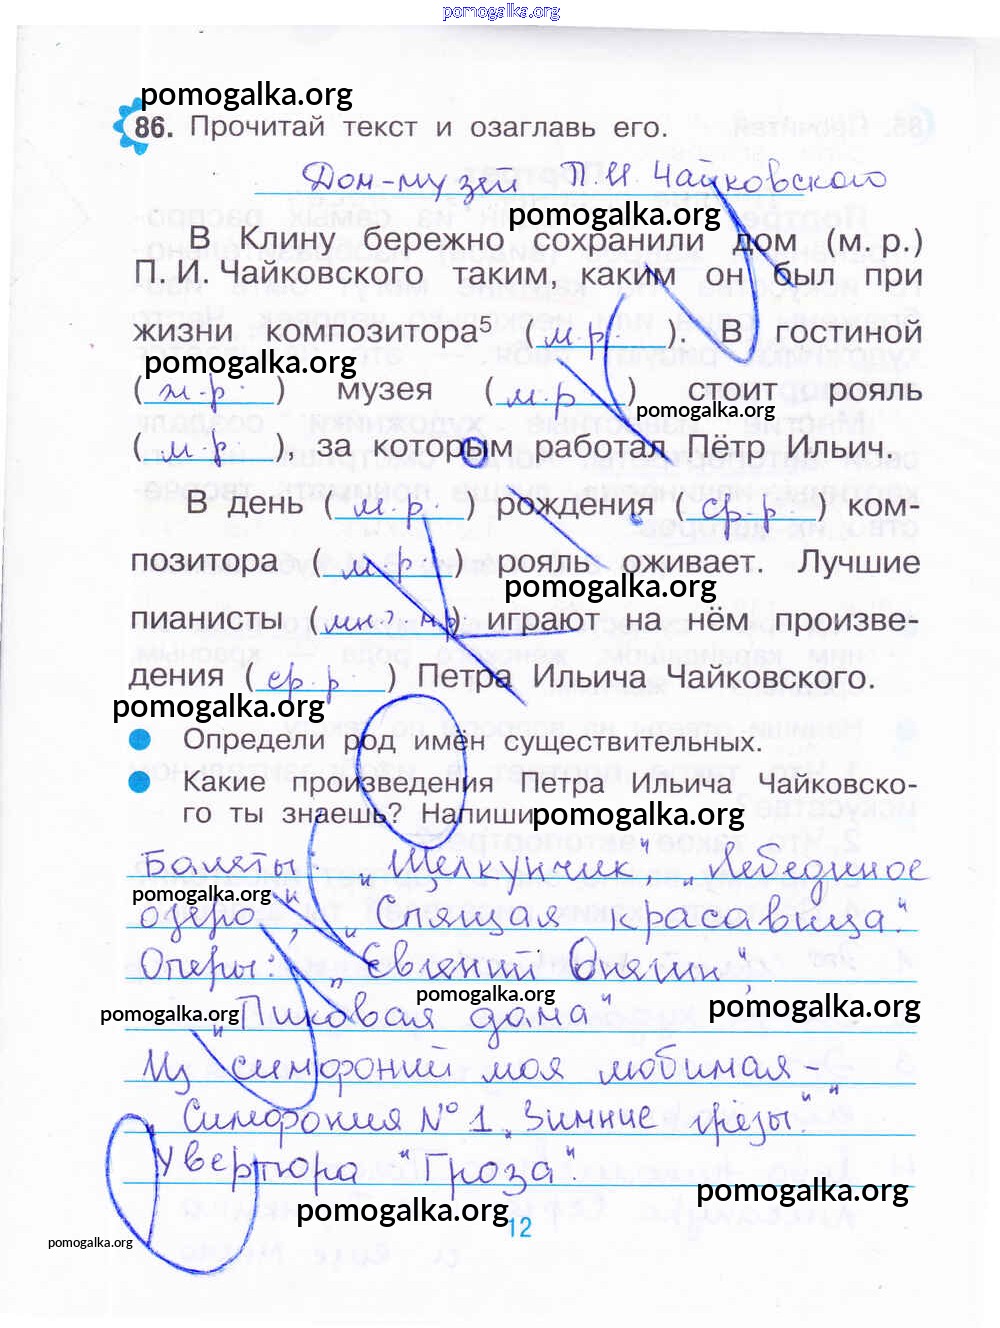 pomogalka.org
pomogalka.org
86. Прочитай текст и озаглавь его.
Дом-музей П.И. Чайковского
pomogalka.org
В Клину бережно сохранили дом (м. р.)
П. И. Чайковского таким, каким он был при
жизни композитора⁵ (м.р.). В гостиной
pomogalka.org
(ж.р.) музея (м.р.) стоит рояль
pomogalka.org
(м.р.), за которым работал Пётр Ильич.
В день (м.р.) рождения (ср.р.) ком-
позитора (м.р.) рояль оживает. Лучшие
pomogalka.org
пианисты (мн.ч.) играют на нём произве-
дения (ср.р) Петра Ильича Чайковского.
pomogalka.org
Определи род имён существительных.
Какие произведения Петра Ильича Чайковско-
го ты знаешь? Напиши
pomogalka.org
Балеты: „Щелкунчик", „Лебединое
pomogalka.org
озеро", „Спящая красавица".
Оперы: „Евгений Онегин",
pomogalka.org
pomogalka.org
pomogalka.org
„Пиковая дама"
Из симфоний моя любимая -
Симфония № 1 „Зимние грёзы."
Увертюра "Гроза".
pomogalka.org
pomogalka.org
12
pomogalka.org